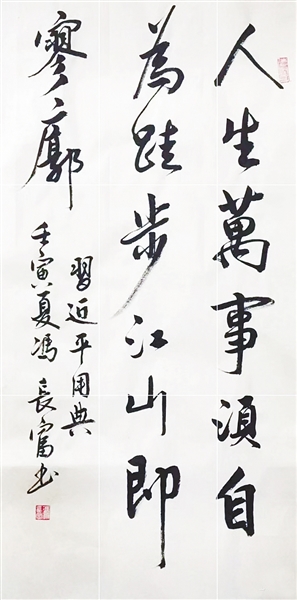 人生萬事須自
為跬步江山即
寥廓
習近平用典
壬寅夏馮長富书